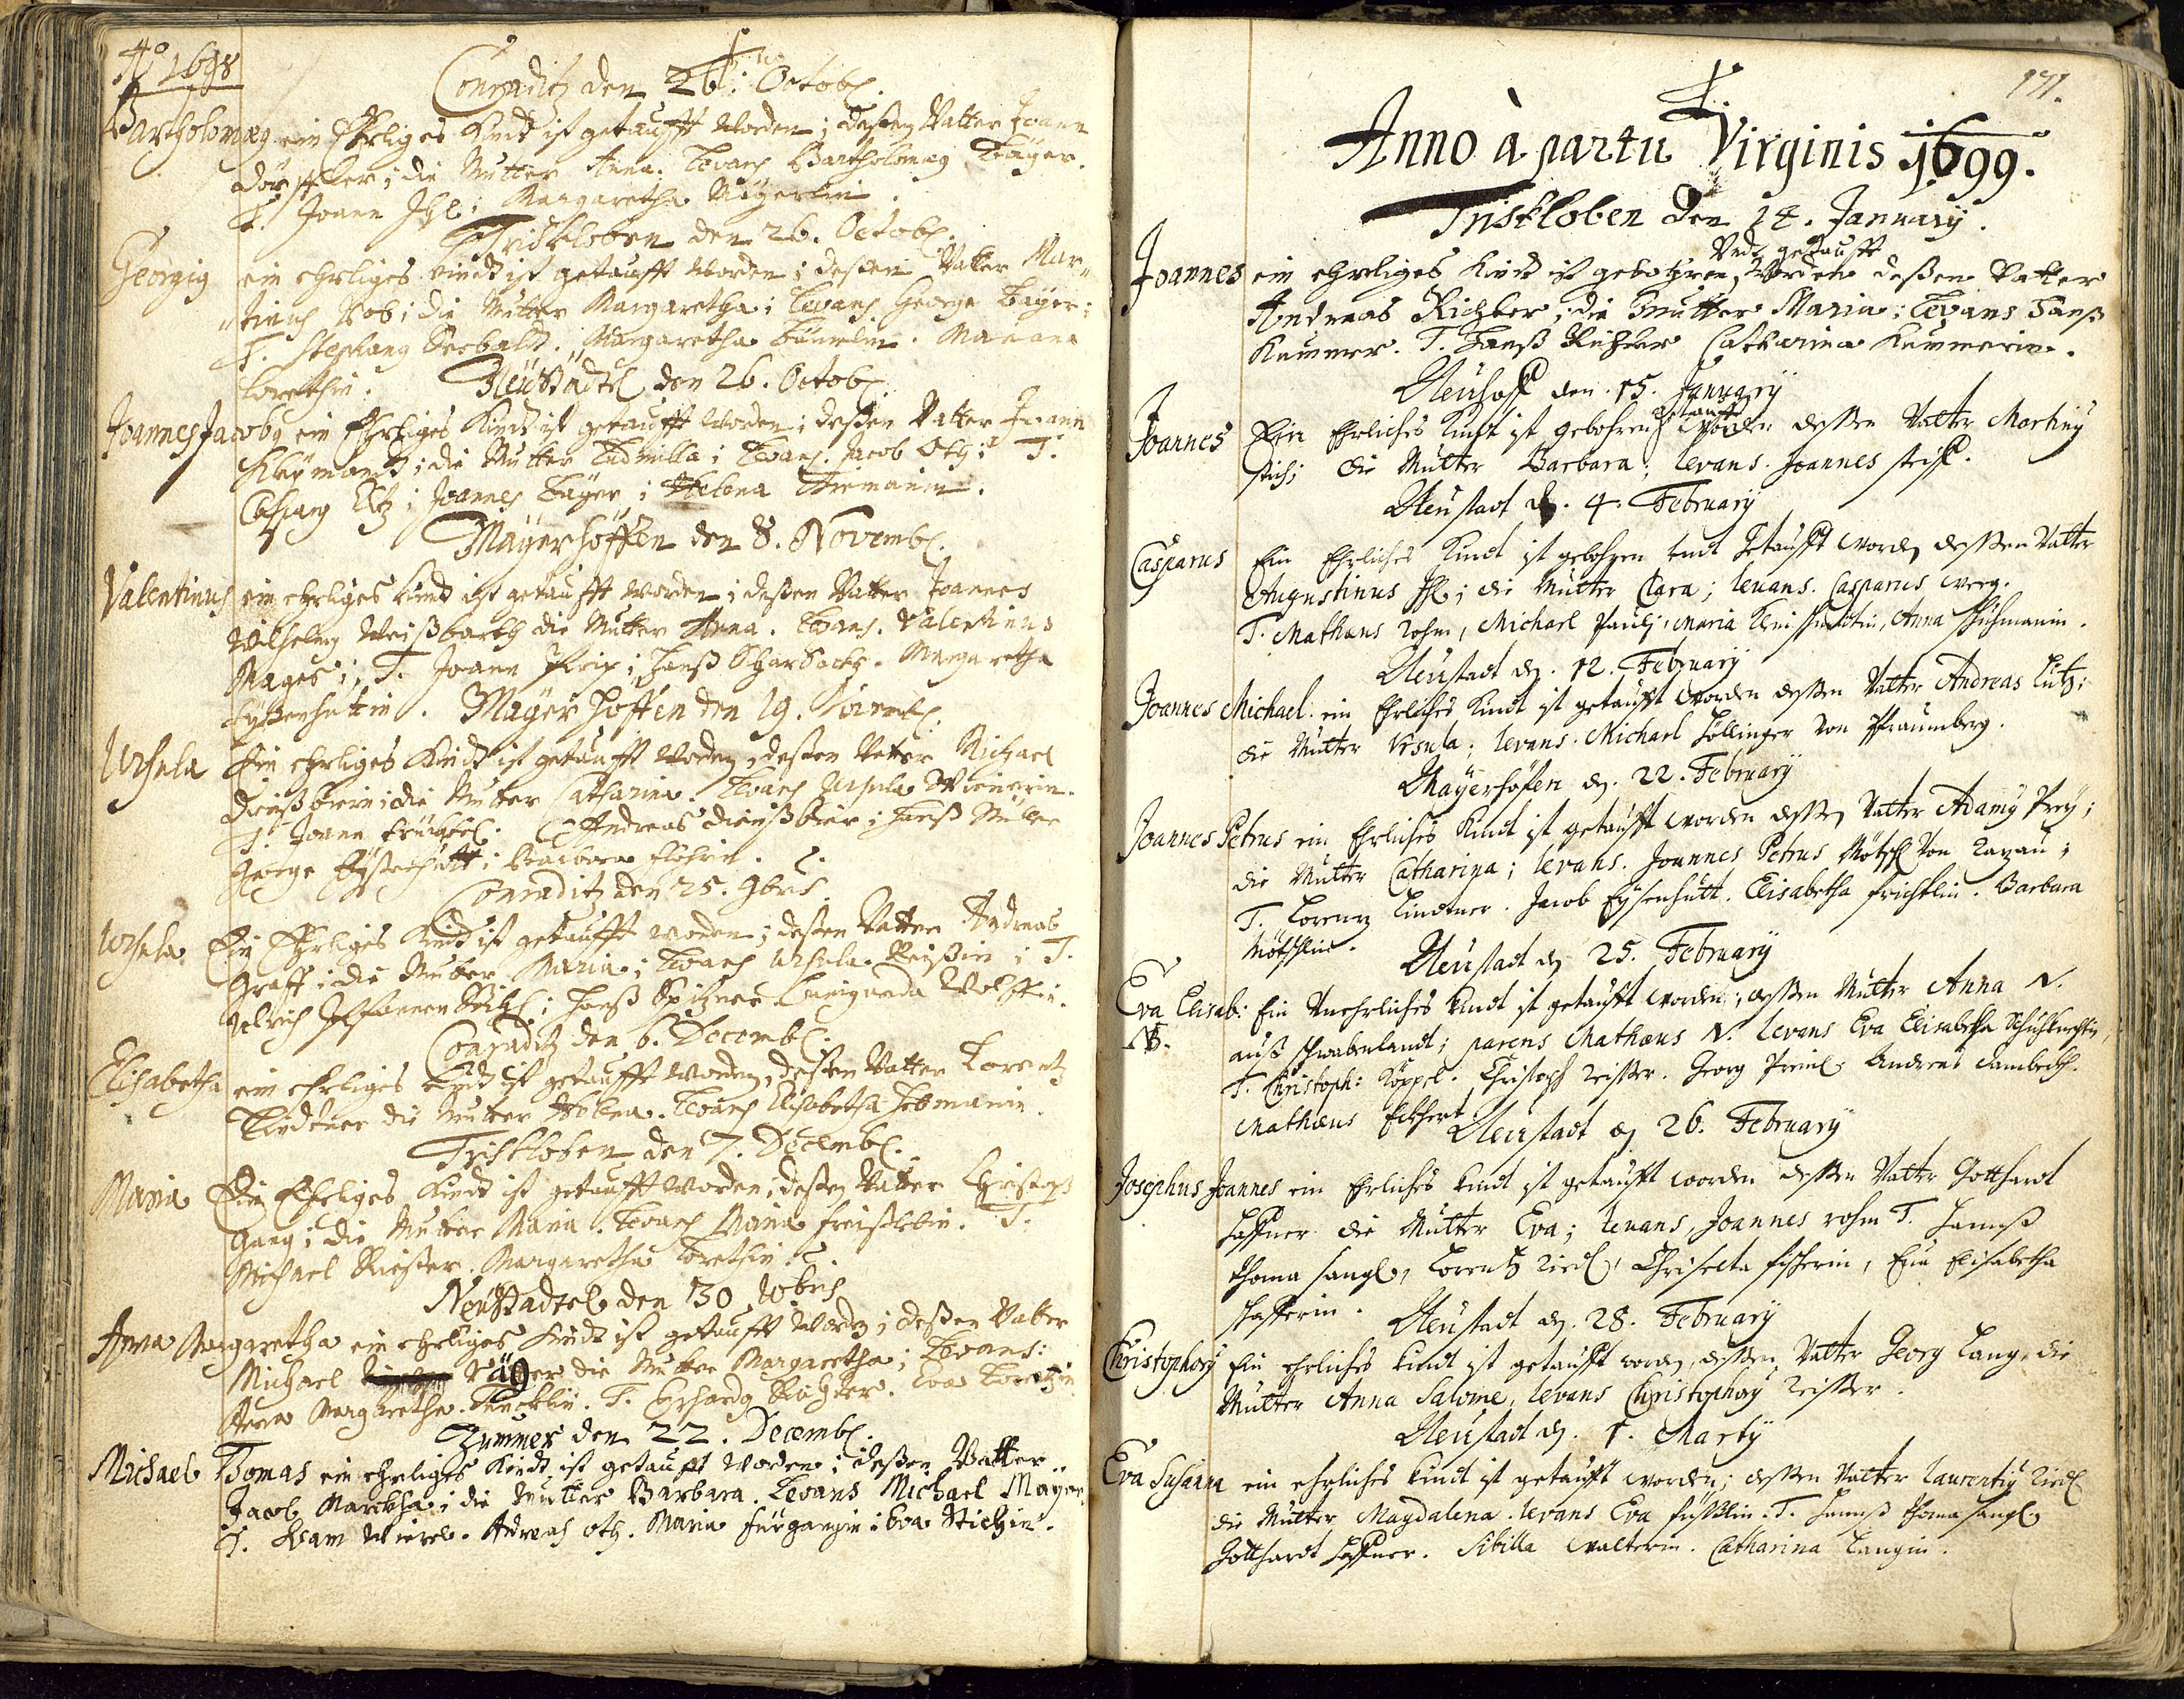 Aō 1698
Conraditz den 26: Octob.
Bartholomæg ein Ehrliges Kindt ist getaufft worden; deßen Vatter Joann
die Mutter Anna. Levans Bartholomæg Bäyer.
T. Joann Margaretha
Triskloben den 26. Octob.
Georgig ein ehrliges kindt ist getaufft worden; deßen Vatter Mar-
tinus Bob; die Mutter Margaretha; Levans George Bäyer;
T. Stephang Seebaldt. Margaretha Mariana
Neüstädtl den 26. Octob.
Joannes Jacobg ein Ehrliges Kindt ist getaufft worden; deßen Vatter Joann
die Mutter Ludmilla; Levans Jacob Otz: T.
Casparg Joannes Bäyer; Helena
Mäyerhöffen den 8. Novemb.
Valentinus ein ehrliges kindt ist getaufft worden; deßen Vatter Joannes
Wilhelmg Weißbarth die Mutter Anna. Levans. Valentinus
Mages; T. Joann Hanß Margaretha
Mäyerhöffen den 19. Novemb.
Ursula Ein ehrliges Kindt ist getaufft worden, deßen Vatter Michael
Dienßbier; die Mutter Catharina. Levans Ursula Wienerin.
T. Joann Andreas Dienßbier; Hanß Müller
George Barbara
Conraditz den 25. 9bris
Ursula Ein Ehrliges Kindt ist getaufft worden; deßen Vatter Andreas
Graff; die Mutter Maria; Levans Ursula Reißin; T.
Ulrich Hanß Spitzner Cunigunda Wolffin.
Conraditz den 6. Decemb.
Elisabetha ein ehrliges Kindt ist getaufft worden, deßen Vatter Lorentz
Lindtner die Mutter Helena. Levans Elisabetha
Triskloben den 7. Decemb.
Maria Ein Ehrliges Kindt ist getaufft worden; deßen Vatter Christoph
Gang; die Mutter Maria. Levans Maria T.
Michael Richter. Margaretha
Neüstadtl den 30 Xbris
Anna Margaretha ein ehrliges Kindt ist getaufft worden; deßen Vatter
Michael die Mutter Margaretha; Levans:
Anna Margaretha T. Erhardg Richter. Eva
Zummer den 22. Decemb.
Michael Thomas ein ehrliges Kindt ist getaufft worden; deßen Vatter
Jacob Marckha; die Mutter Barbara. Levans Michael Mayer
T. Adam Andreas Otz. Maria Fürgangin; Eva Stichin.
171.
Anno à partu Virginis 1699.
Triskloben den 14. January.
Vndt getaufft
Joannes ein ehrliges kindt ist gebohren, worden deßen Vatter
Andreas Richter; die Mutter Maria: Levans Hanß
Kummer. T. Hanß Richter Catharina Kummerin.
Neuhoff den. 15. January
getaufft
Joannes Ein Ehrliches Kindt ist gebohren worden deßen Vatter Martinq
stich; die Mutter Barbara; levans. Joannes
Neustadt d. 4. February
Casparus Ein Ehrliches Kindt ist gebohren undt Getaufft worden deßen Vatter
Augustinus die Mutter Clara; levans. Casparus
T. Mathæus rohm, Michael Pauly, Maria Anna Schuhmanin.
Neustadt d. 12. February
Joannes Michael: ein Ehrliches Kindt ist getaufft worden deßen Vatter Andreas Lutz:
die Mutter Vrsula; levans. Michael Höllinger Von Pfraumberg.
Mayerhöfen d. 22. February
Joannes Petrus ein Ehrliches Kindt ist getaufft worden deßen Vatter Adamq Prey;
die Mutter Catharina; levans. Joannes Petrus Mötschl Von
T. Lorenz Lindtner. Jacob Eysenhutt. Elisabetha Barbara
Mötschlin.
Neustadt d. 25. February
Eva Elisab: Ein Vnehrliches Kindt ist getaufft worden; deßen Mutter Anna N.
NB. auß schwabenlandt; parens Mathæus N. levans Eva Elisabetha Schuhknechtin,
T. Christoph: Köppel. Christoph reisser. Georg Andreas
Mathæus Eckhert.
Neustadt d. 26. February
Josephus Joannes ein Ehrliches Kindt ist getaufft worden deßen Vatter Gotthardt
Haffner die Mutter Eva; levans, Joannes rohm T. Hannß
thoma sangl, Lorentz ried, fischerin, Eva Elisabetha
Neustadt d. 28. February
Christophorq Ein ehrliches Kindt ist getaufft worden, deßen Vatter Georg Lang, die
Mutter Anna Salome, levans Christophorq reisser.
Neustadt d. 1. Martÿ
Eva Susanna ein ehrliches Kindt ist getaufft worden; deßen Vatter laurentiq ried
die Mutter Magdalena. levans Eva T. Hannß thoma sangl
Gotthardt Haffner. Sibilla walterin. Catharina Langin.